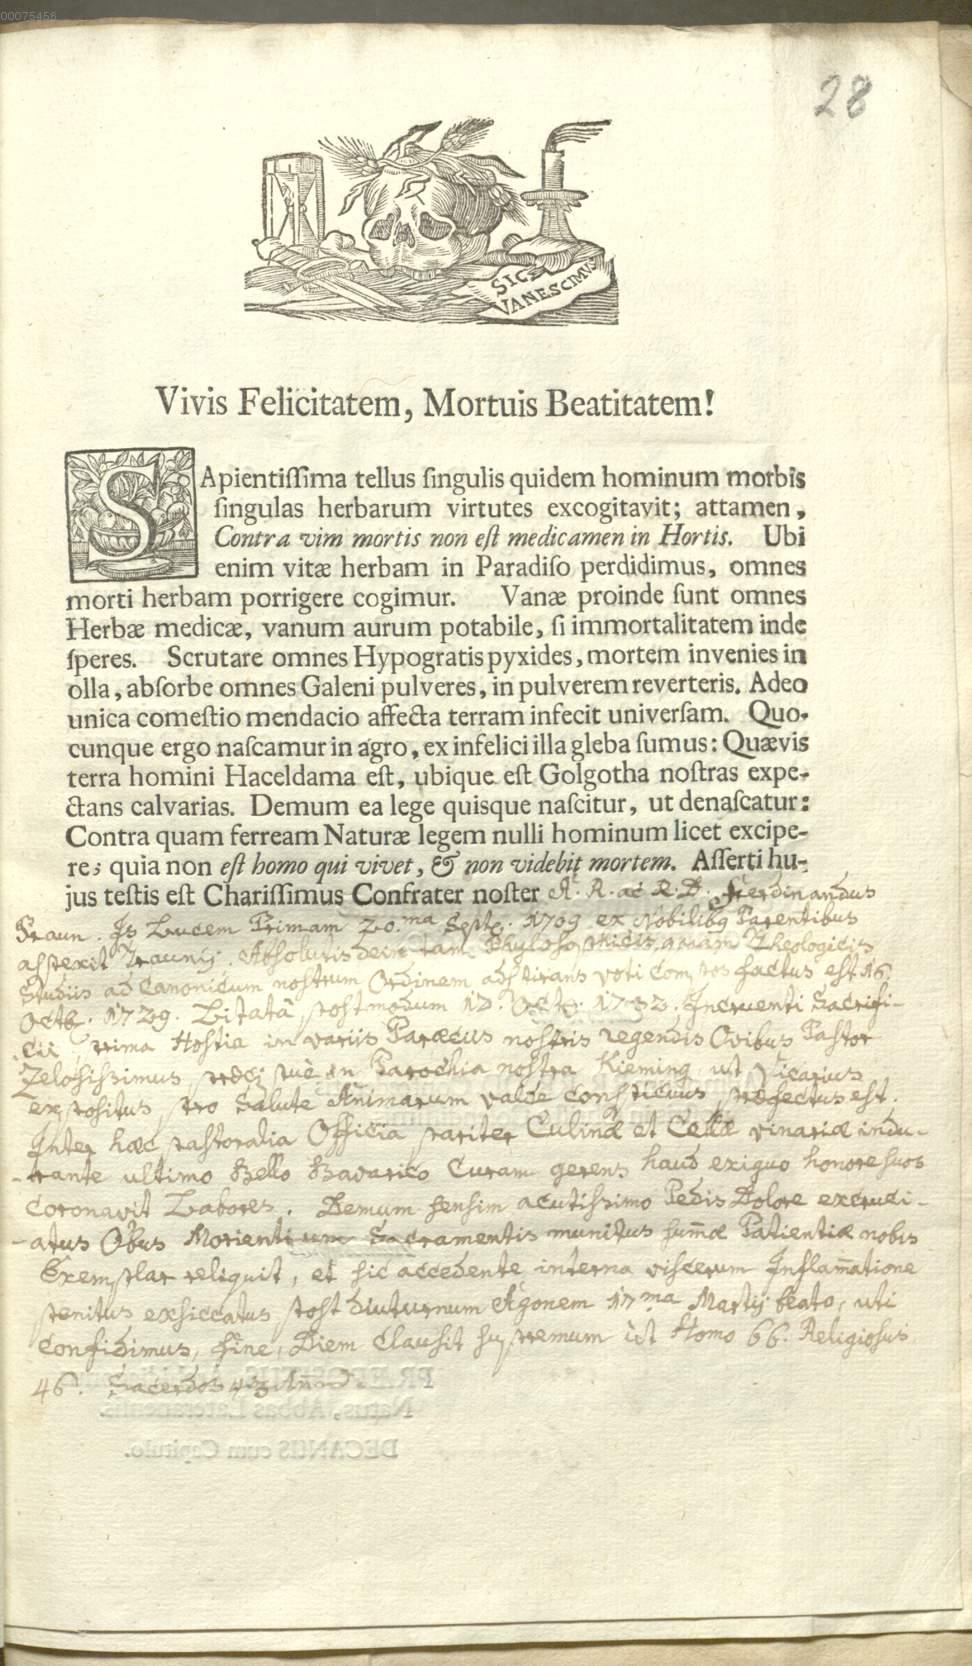 00075456
28
SIC
VANESCIMVS
Vivis Felicitatem, Mortuis Beatitatem!
SApientiſſima tellus ſingulis quidem hominum morbis
ſingulas herbarum virtutes excogitavit; attamen,
Contra vim mortis non eſt medicamen in Hortis. Ubi
enim vitæ herbam in Paradiſo perdidimus, omnes
morti herbam porrigere cogimur. Vanæ proinde ſunt omnes
Herbæ medicæ, vanum aurum potabile, ſi immortalitatem inde
ſperes. Scrutare omnes Hypogratis pyxides, mortem invenies in
olla, abſorbe omnes Galeni pulveres, in pulverem reverteris. Adeo
unica comeſtio mendacio affecta terram infecit univerſam. Quo-
cunque ergo naſcamur in agro, ex infelici illa gleba ſumus: Quævis
terra homini Haceldama eſt, ubique eſt Golgotha noſtras expe-
ctans calvarias. Demum ea lege quisque naſcitur, ut denaſcatur:
Contra quam ferream Naturæ legem nulli hominum licet excipe-
re; quia non eſt homo qui vivet, & non videbit mortem. Aſſerti hu-
jus teſtis eſt Chariſſimus Confrater noſter A. R. ac R. D. Ferdinandus
Is Lucem Primam 20.ma Septb. 1709 ex Nobilibq Parentibus
aspexit Traunij. Absolutis dein tam Phylosophicis, quam Theologicis
Studiis ad Canonicum nostrum Ordinem adspirans voti compos factus est 16.
Octb. 1729. Litatâ postmodum 12. Octb. 1732. Incruenti Sacrifi-
cii prima Hostia in variis Paræciis nostris regendis Ovibus Pastor
Zelosissimus, in Parochia nostra Kieming ut Vicarius
expositus pro Salute Animarum valde conspicuus præfectus est.
Inter hæc pastoralia Officia pariter Culinæ et Cellæ vinariæ indu-
-rante ultimo Bello Bavarico Curam gerens haud exiguo honore suos
coronavit Labores. Demum sensim acutissimo Pedis Dolore excruci-
-atus Obus Morientium Sacramentis munitus summæ Patientiæ nobis
Exemplar reliquit, et sic accedente interna viscerum Inflam̄atione
penitus exsiccatus post diuturnum Agonem 17ma Martij beato, uti
confidimus, fine, Diem Clausit supremum ut Homo 66. Religiosus
46. Sacerdos 43 Annō.